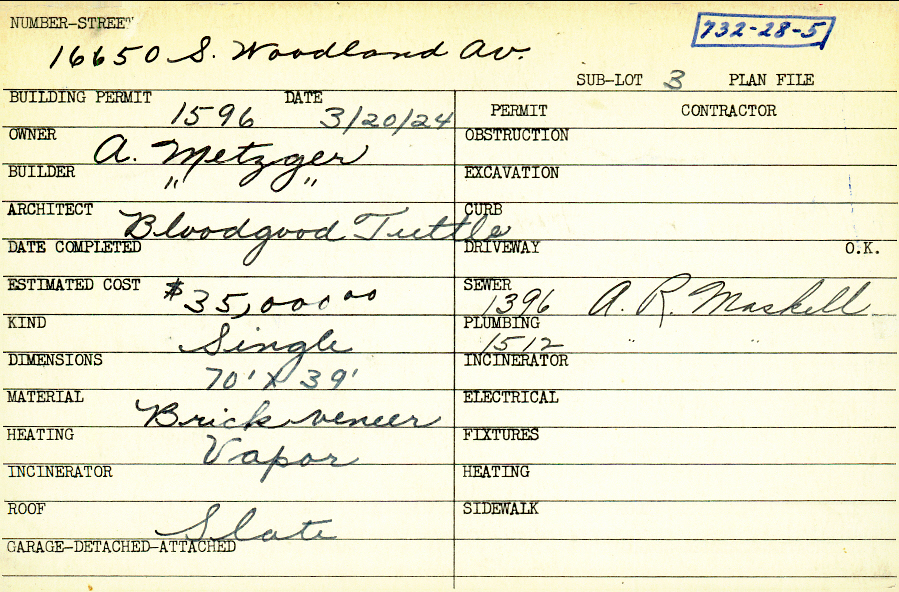 NUMBER-STREET
16650 S. Woodland Av.
732-28-5
SUB-LOT 3 PLAN FILE
BUILDING PERMIT 1596 DATE 3/20/24
OWNER A. Metzger
BUILDER " "
ARCHITECT Bloodgood Tuttle
DATE COMPLETED
ESTIMATED COST $35,000.00
KIND Single
DIMENSIONS 70' X 39'
MATERIAL Brick veneer
HEATING Vapor
INCINERATOR
ROOF Slate
GARAGE-DETACHED-ATTACHED
PERMIT CONTRACTOR
OBSTRUCTION
EXCAVATION
CURB
DRIVEWAY O.K.
SEWER 1396 A. R. Maskell
PLUMBING 1512 " "
INCINERATOR
ELECTRICAL
FIXTURES
HEATING
SIDEWALK